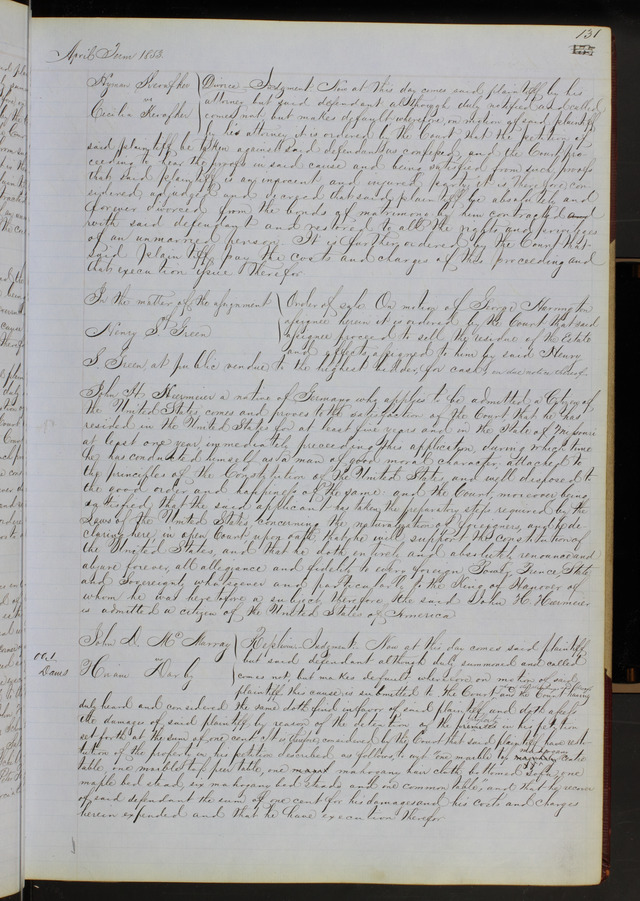 131
April Term 1853.
Divorce - Judgment Now at this day comes said plaintiff by his
vs
attorney but said defendant although duly notified and called
Cecilia
comes not, but makes default wherefore, on motion of said plaintiff
by his attorney it is ordered by the Court that the petition of
said plaintiff be taken against said defendant as confessed, and the Court pro-
ceeding to hear the proofs in said cause and being satisfied from such proofs
that said plaintiff is an innocent and injured party it is therefore con-
sidered adjudged and decreed that said plaintiff be absolutely and
forever divorced from the bonds of matrimony by him contracted
with said defendant and restored to all the rights and privileges
of an unmarried person. It is further ordered by the Court that
said Plaintiff pay the costs and charges of this proceeding and
that execution issue therefor
In the matter of the assignment
of
Henry S. Green
Order of sale On motion of George Harrington
assignee herein it is ordered by the Court that said
assignee proceed to sell the residue of the Estate
and effects assigned to him by said Henry
S. Green, at public vendue to the highest bidder, for cash on due notice thereof
John H. a native of Germany who applies to be admitted a Citizen of
the United States comes and proves to the satisfaction of the Court that he has
resided in the United States for at least five years and in the State of Missouri
at least one year immediately preceeding this application, during which time
he has conducted himself as a man of good moral character, attached to
the principles of the Constitution of the United States, and well disposed to
the good order and happiness of the same: and the Court, moreover being
satisfied that the said applicant has taken the preparatory steps required by the
Laws of the United States, concerning the naturalization of foreigners, and he de-
claring here in open Court upon oath, that he will support the constitution of
the United States, and that he doth entirely and absolutely renounce and
abjure forever, all allegiance and fidelity to every foreign Power, Prince, State
and Sovereignty whatsoever and particularly to the King of Hanover of
whom he was heretofore a subject, therefore the said John H.
is admitted a citizen of the United States of America
John A. McMurray
Replevin Judgment Now at this day comes said plaintiff
but said defendant although duly summoned and called
Hiram
comes not, but makes default; whereupon on motion of said
plaintiff this cause is submitted to the Court and the Court having
duly heard and considered the same doth find in favor of said plaintiff, and doth assess
the damages of said plaintiff by reason of the detention of the in his petition
set forth at the sum of one cent It is therefore considered by the Court that said plaintiff have resti-
tution of the property in his petition described, as follows, to wit "one marble top centre
table, one marble top pier table, one mahogany hair cloth bottomed sofa, one
maple bed stead, six mahogany and one common table", and that he recover
of said defendant the sum of one cent for his damages and his costs and charges
herein expended and that he have execution therefor